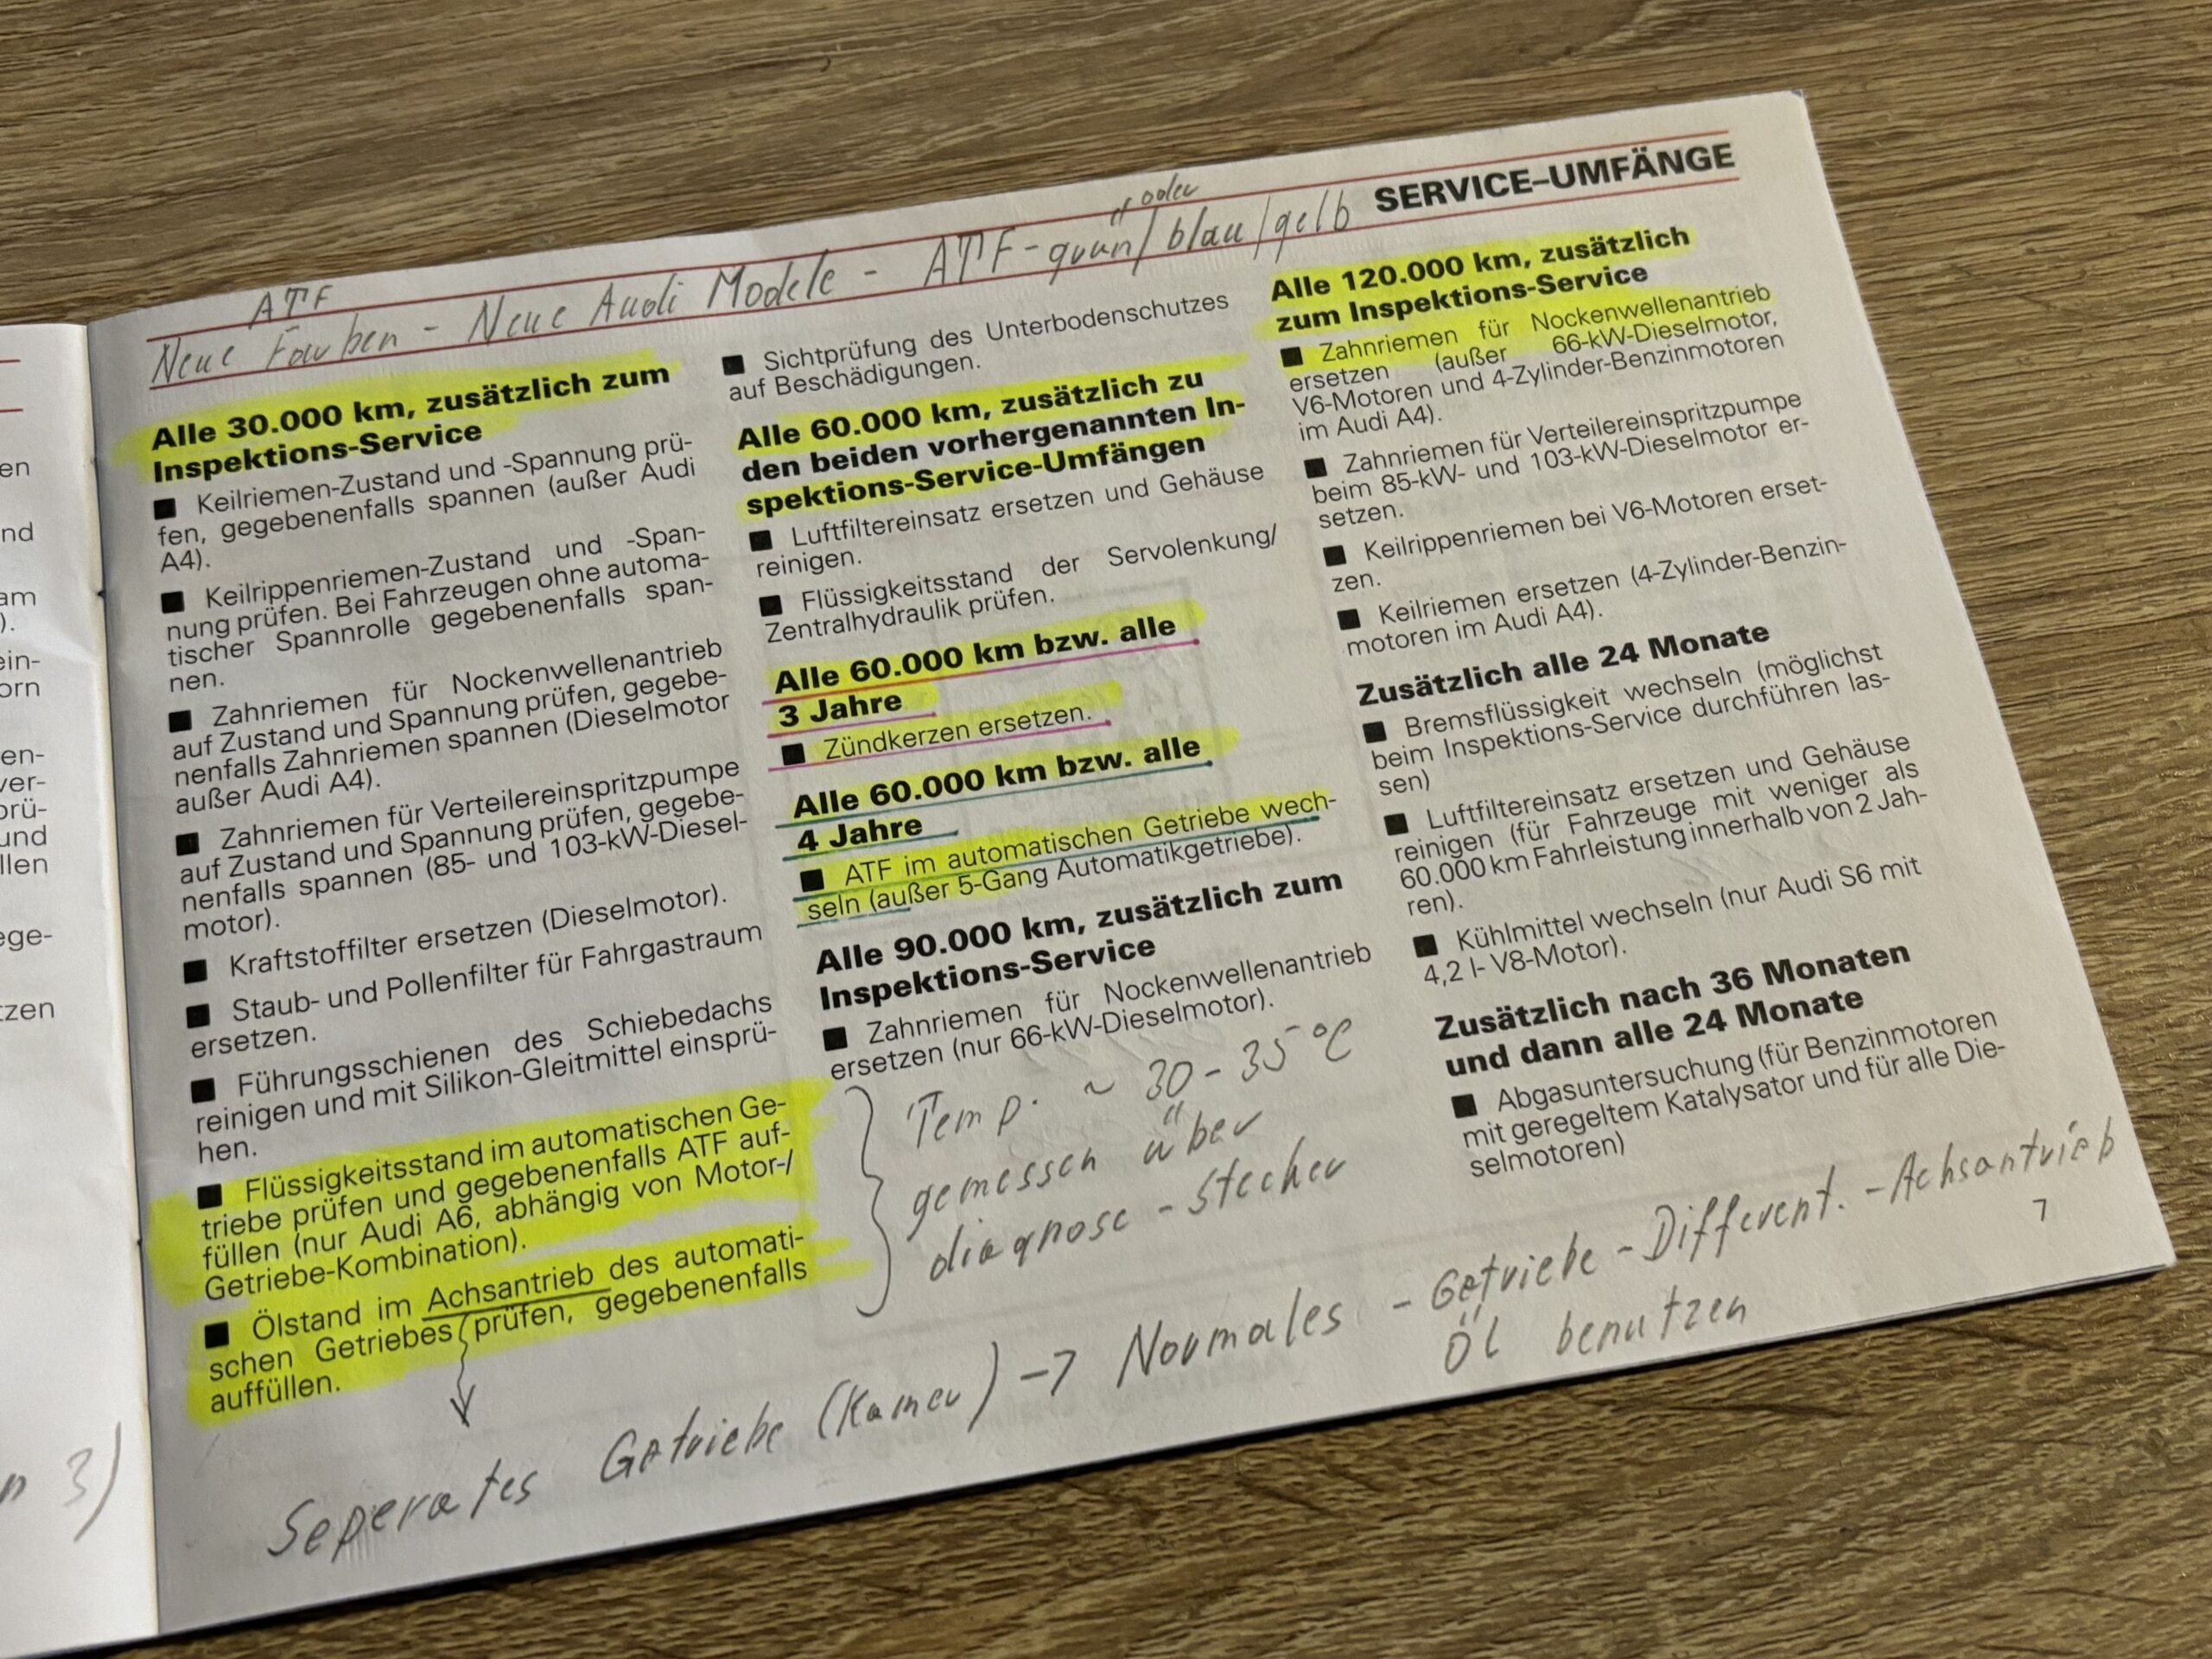 SERVICE–UMFÄNGE
ATF
oder
Neue Farben - Neue Audi Modele - ATF - / blau / gelb
Alle 30.000 km, zusätzlich zum
Inspektions-Service
■ Keilriemen-Zustand und -Spannung prü-
fen, gegebenenfalls spannen (außer Audi
A4).
■ Keilrippenriemen-Zustand und -Span-
nung prüfen. Bei Fahrzeugen ohne automa-
tischer Spannrolle gegebenenfalls span-
nen.
■ Zahnriemen für Nockenwellenantrieb
auf Zustand und Spannung prüfen, gegebe-
nenfalls Zahnriemen spannen (Dieselmotor
außer Audi A4).
■ Zahnriemen für Verteilereinspritzpumpe
auf Zustand und Spannung prüfen, gegebe-
nenfalls spannen (85- und 103-kW-Diesel-
motor).
■ Kraftstoffilter ersetzen (Dieselmotor).
■ Staub- und Pollenfilter für Fahrgastraum
ersetzen.
■ Führungsschienen des Schiebedachs
reinigen und mit Silikon-Gleitmittel einsprü-
hen.
■ Flüssigkeitsstand im automatischen Ge-
triebe prüfen und gegebenenfalls ATF auf-
füllen (nur Audi A6, abhängig von Motor-/
Getriebe-Kombination).
■ Ölstand im Achsantrieb des automati-
schen Getriebes prüfen, gegebenenfalls
auffüllen.
■ Sichtprüfung des Unterbodenschutzes
auf Beschädigungen.
Alle 60.000 km, zusätzlich zu
den beiden vorhergenannten In-
spektions-Service-Umfängen
■ Luftfiltereinsatz ersetzen und Gehäuse
reinigen.
■ Flüssigkeitsstand der Servolenkung/
Zentralhydraulik prüfen.
Alle 60.000 km bzw. alle
3 Jahre
■ Zündkerzen ersetzen.
Alle 60.000 km bzw. alle
4 Jahre
■ ATF im automatischen Getriebe wech-
seln (außer 5-Gang Automatikgetriebe).
Alle 90.000 km, zusätzlich zum
Inspektions-Service
■ Zahnriemen für Nockenwellenantrieb
ersetzen (nur 66-kW-Dieselmotor).
Temp. ~ 30 - 35 °C
gemessen über
diagnose - stecher
Alle 120.000 km, zusätzlich
zum Inspektions-Service
■ Zahnriemen für Nockenwellenantrieb
ersetzen (außer 66-kW-Dieselmotor,
V6-Motoren und 4-Zylinder-Benzinmotoren
im Audi A4).
■ Zahnriemen für Verteilereinspritzpumpe
beim 85-kW- und 103-kW-Dieselmotor er-
setzen.
■ Keilrippenriemen bei V6-Motoren erset-
zen.
■ Keilriemen ersetzen (4-Zylinder-Benzin-
motoren im Audi A4).
Zusätzlich alle 24 Monate
■ Bremsflüssigkeit wechseln (möglichst
beim Inspektions-Service durchführen las-
sen)
■ Luftfiltereinsatz ersetzen und Gehäuse
reinigen (für Fahrzeuge mit weniger als
60.000 km Fahrleistung innerhalb von 2 Jah-
ren).
■ Kühlmittel wechseln (nur Audi S6 mit
4,2 l- V8-Motor).
Zusätzlich nach 36 Monaten
und dann alle 24 Monate
■ Abgasuntersuchung (für Benzinmotoren
mit geregeltem Katalysator und für alle Die-
selmotoren)
Seperates Getriebe (Kamer) → Normales - Getriebe - Different. - Achsantrieb
Öl benutzen
7
en
nd
am
).
ein-
orn
en-
ver-
prü-
und
llen
ege-
tzen
3)